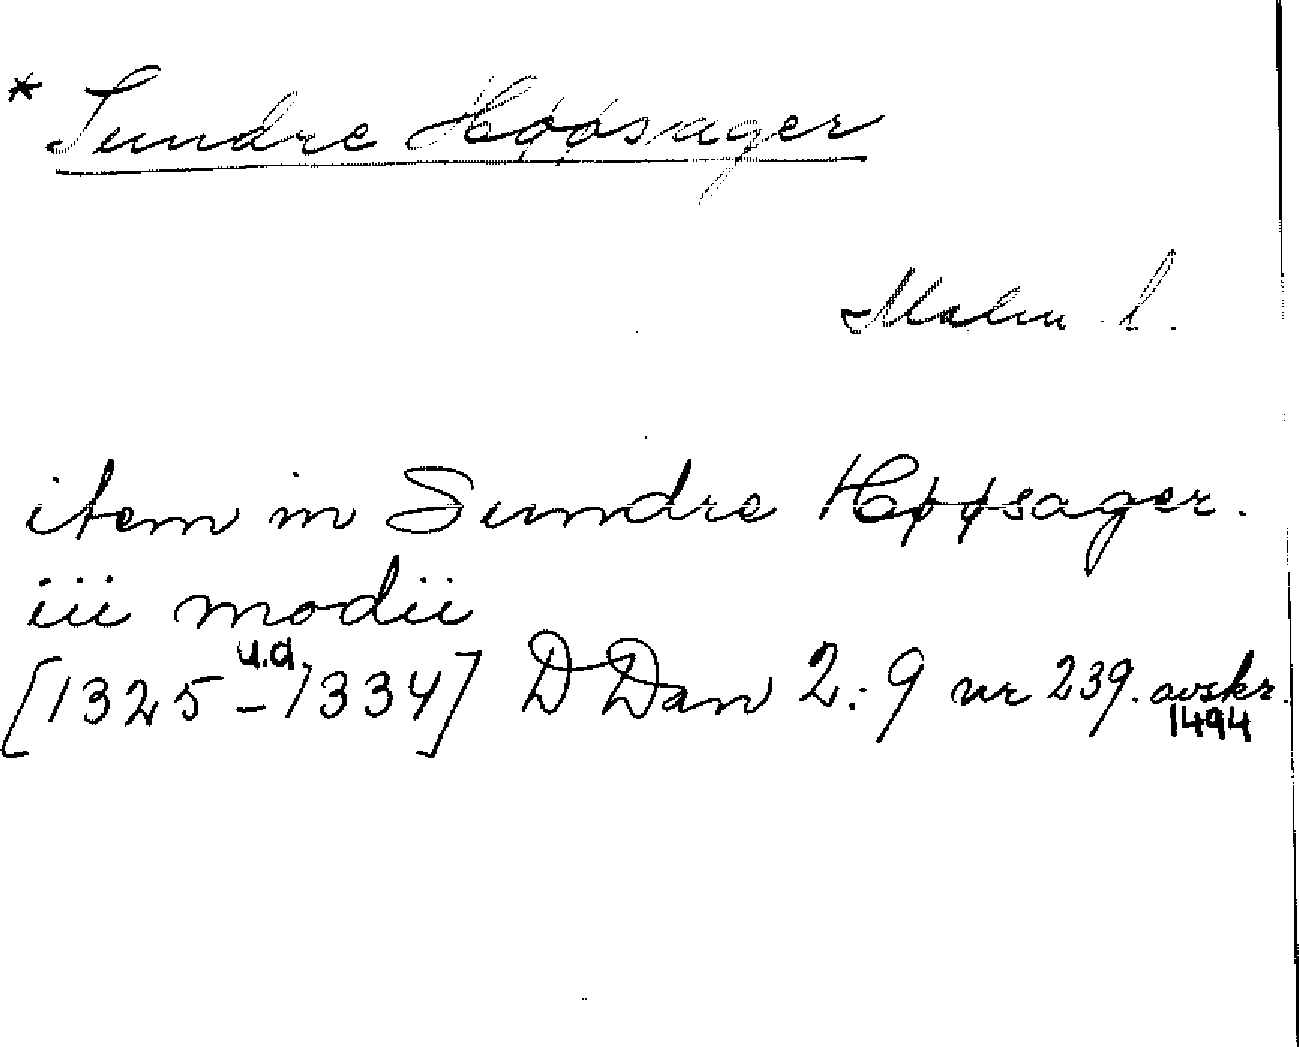 * Sundre Høøsager
Malm l.
item in Sundre Høøsager.
iii modii
[1325 – u.a. 1334] D Dan 2:9 nr 239. avskr. 1494